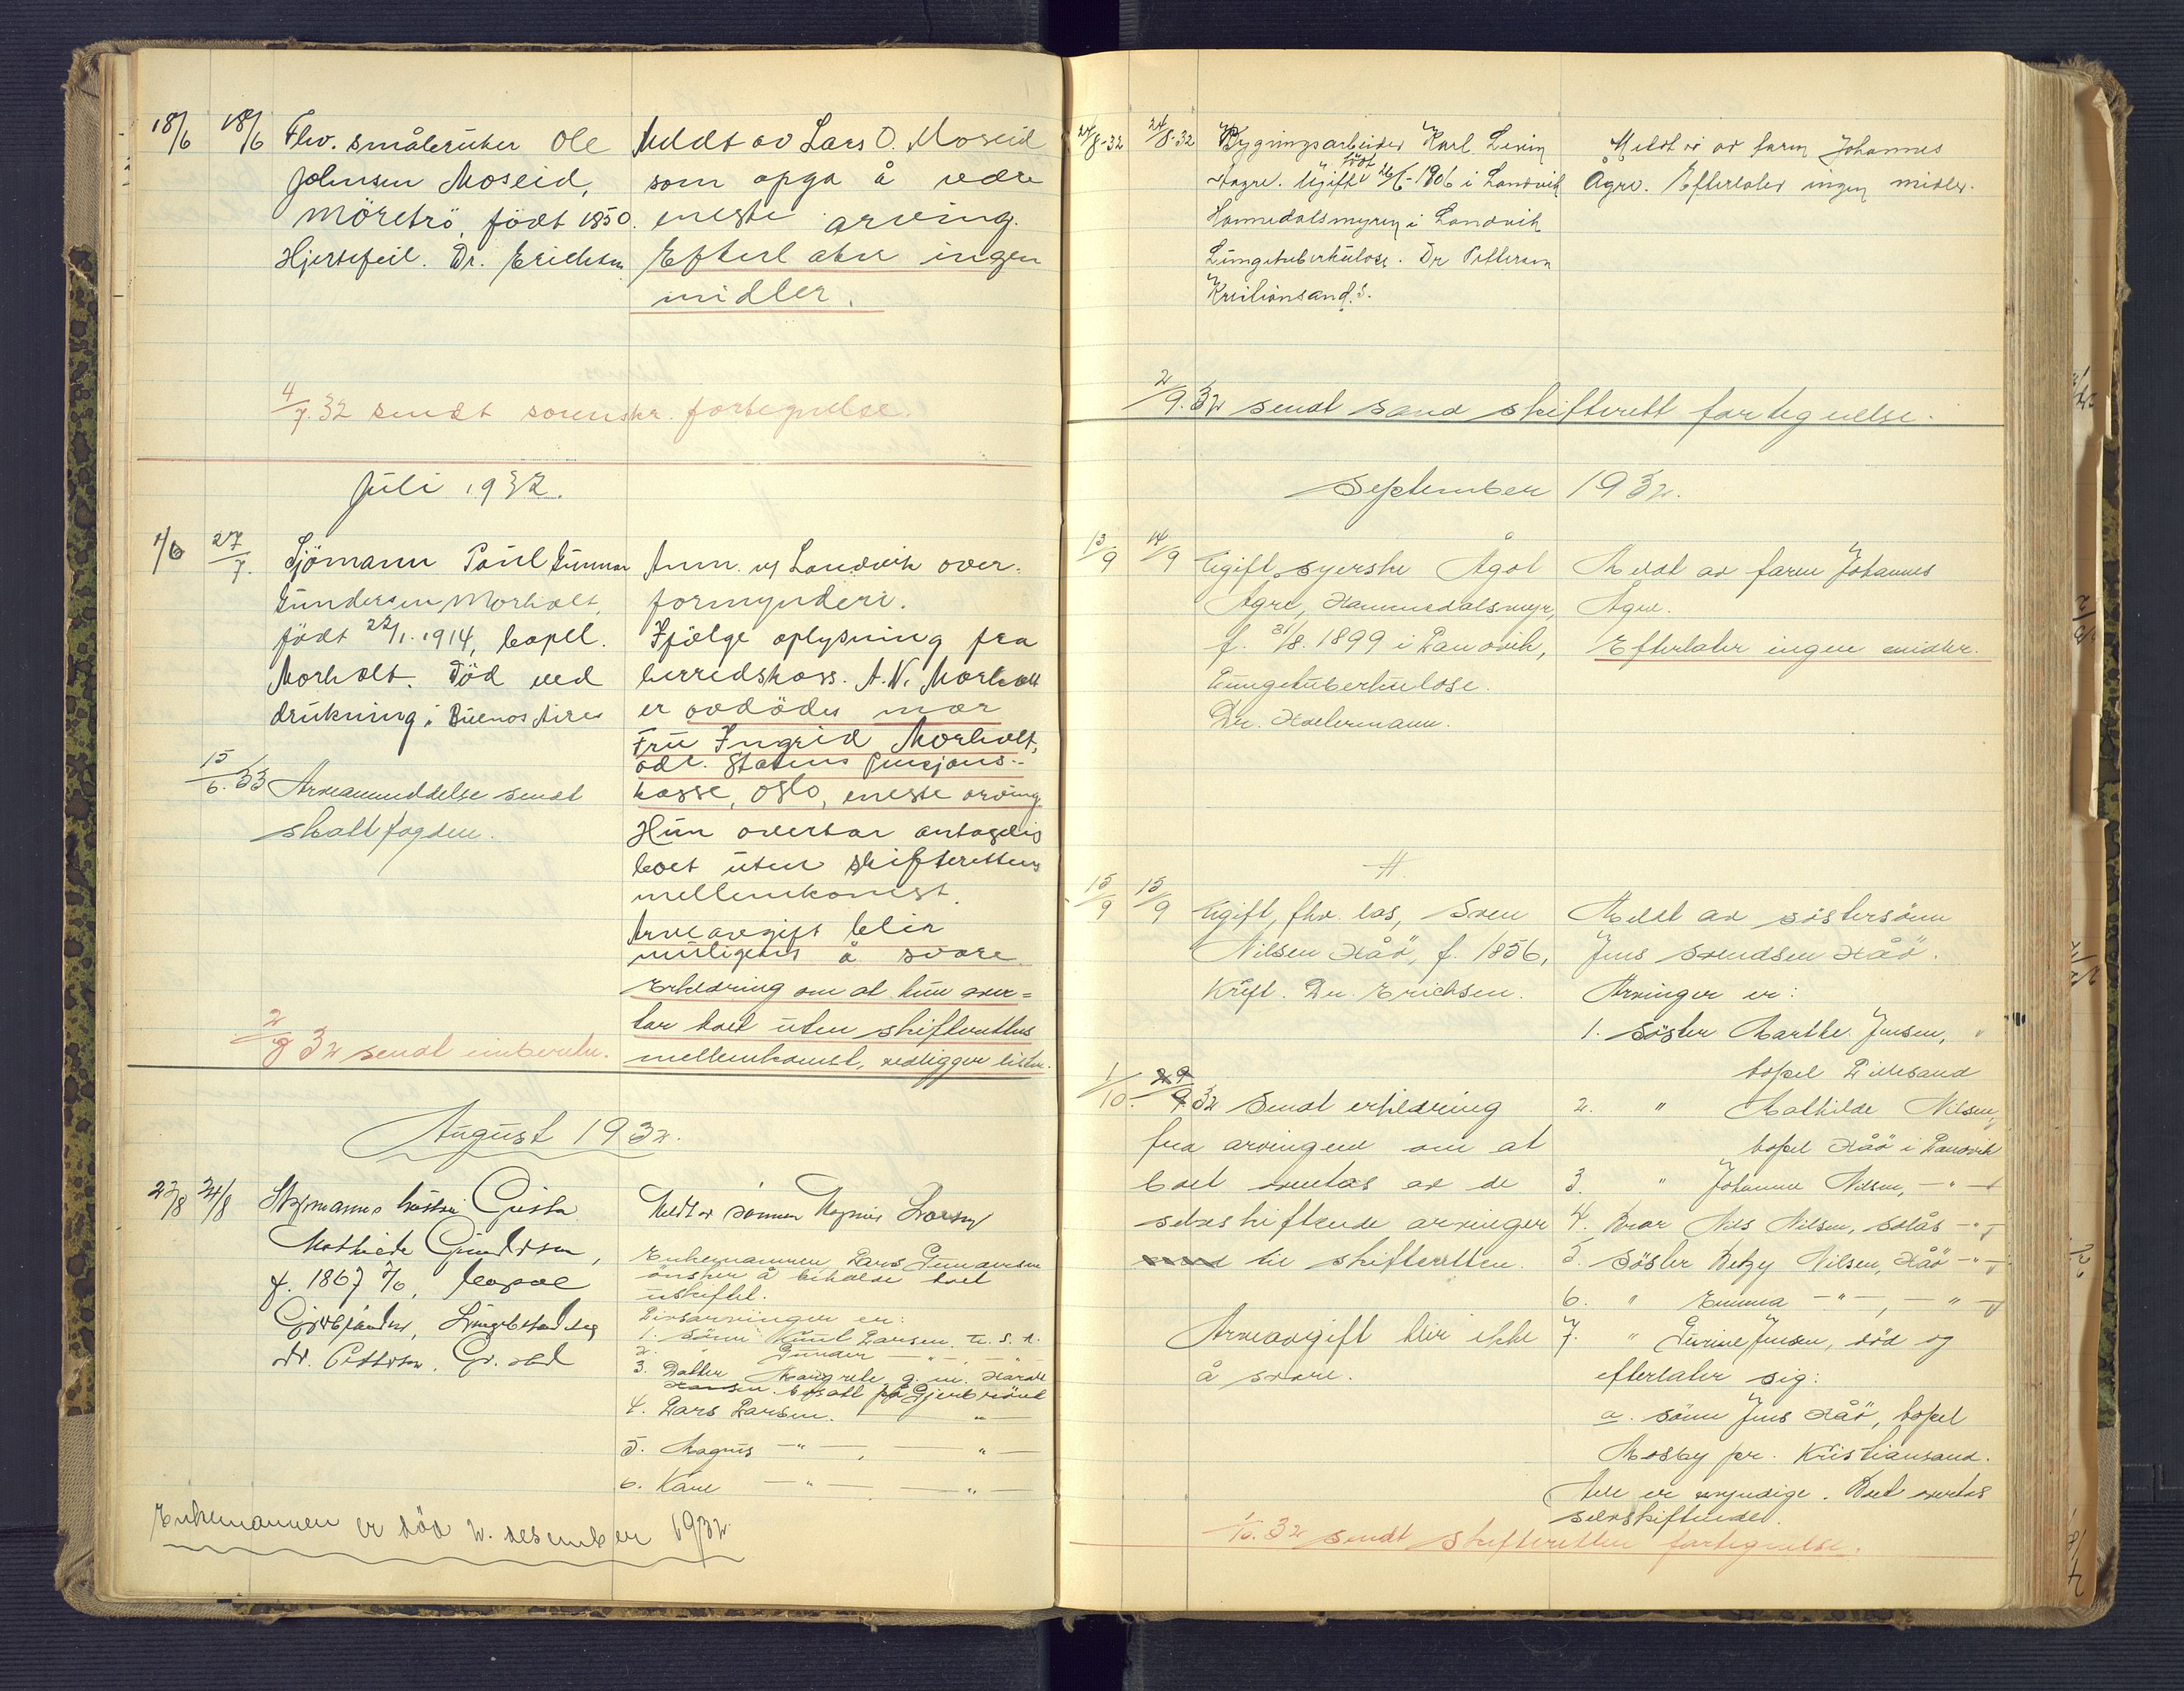 18/6 18/6 Fhv. småbruker Ole
Johnsen Moseid,
Möretrö, födt 1850.
Hjertefeil. Dr. Erichsen
Meldt av Lars O. Moseid
som opga å være
eneste arving.
Efterlater ingen
midler.
4/7.32 sendt sorenskr. fortegnelse.
Juli 1932.
1/6 27/7. Sjömann Paul Gunnar
Gundersen Morholt,
födt 22/1.1914, bopel
Morholt. Död ved
drukning i Buenos Aires
15/6.33 Arveanmeldelse sendt
skattfogden.
Anm. vy Landvik over-
formynderi.
Ifölge oplysning fra
herredskass. A.N. Morholt
er avdödes mor
Fru Ingrid Morholt,
adr. Statens Pensjons-
kasse, Oslo, eneste arving
Hun overtar antagelig
boet uten skifterettens
mellemkomst.
Arveavgift blir
muligens å svare.
Erklæring om at hun over-
tar boet uten skifterettens
mellemkomst, vedligger listen.
2/8 32 sendt innberetn.
August 1932.
23/8 24/8 hustru
Mathilde Gundersen,
f. 1867 bopæl
Dr. Pettersen, Gr.stad
Meldt av sönnen Magnus Larsen
Enkemannen Lars Gundersen
önsker å beholde boet
uskiftet.
Livsarvinger er:
1. Sönn Knut Larsen. U.S.A.
2. " Gunder — " —
3. Datter Margrete g. m. Harald
Hansen bosatt på Gjerbrönd
4. Lars Larsen. — " —
5. Magnus — " —, — " —
6. Kåre — " —, — " —
Enkemannen er död 2. desember 1932
24/8-32 24/8-32 Bygningsarbeider Karl Levin
Aagre. Ugift födt 26/6-1906 i Landvik
Hommedalsmyren i Landvik
Lungetuberkulose. Dr Pettersen
Kristiansand.S.
Meldt av faren Johannes
Ågre. Efterlater ingen midler.
2/9.32 sendt sand skifterett fortegnelse.
September 1932.
13/9 14/9 Ugift syerske Ågot
Ågre, Hommedalsmyr,
f. 31/8. 1899 i Landvik,
Lungetuberkulose.
Dr. Holtermann.
Meldt av faren Johannes
Ågre.
Efterlater ingen midler.
15/9 15/9 Ugift, fhv. los, Sven
Nilsen Håö, f. 1856,
Kreft. Dr. Erichsen.
Meldt av söstersönn
Jens Svendsen Håö.
Arvinger er:
1. Söster Marthe Jensen,
bopel Lillesand
2. " Mathilde Nilsen,
bopel Håö i Landvik
3. " Johanne Nilsen, — " —
4. Bror Nils Nilsen, Solås — " —
5. Söster Betzy Nilsen, Håö — " —
6. " Emma — " —, — " —
7. " Gurine Jensen, död og
efterlater sig:
a. sönn Jens Håö, bopel
Mosby pr. Kristiansand.
Alle er myndige. Boet overtas
selvskiftende.
1/10. 29/9 32 Sendt erklæring
fra arvingene om at
boet overtas av de
selvskiftende arvinger
til skifteretten.
Arveavgift blir ikke
å svare.
1/10.32 sendt skifteretten fortegnelse.